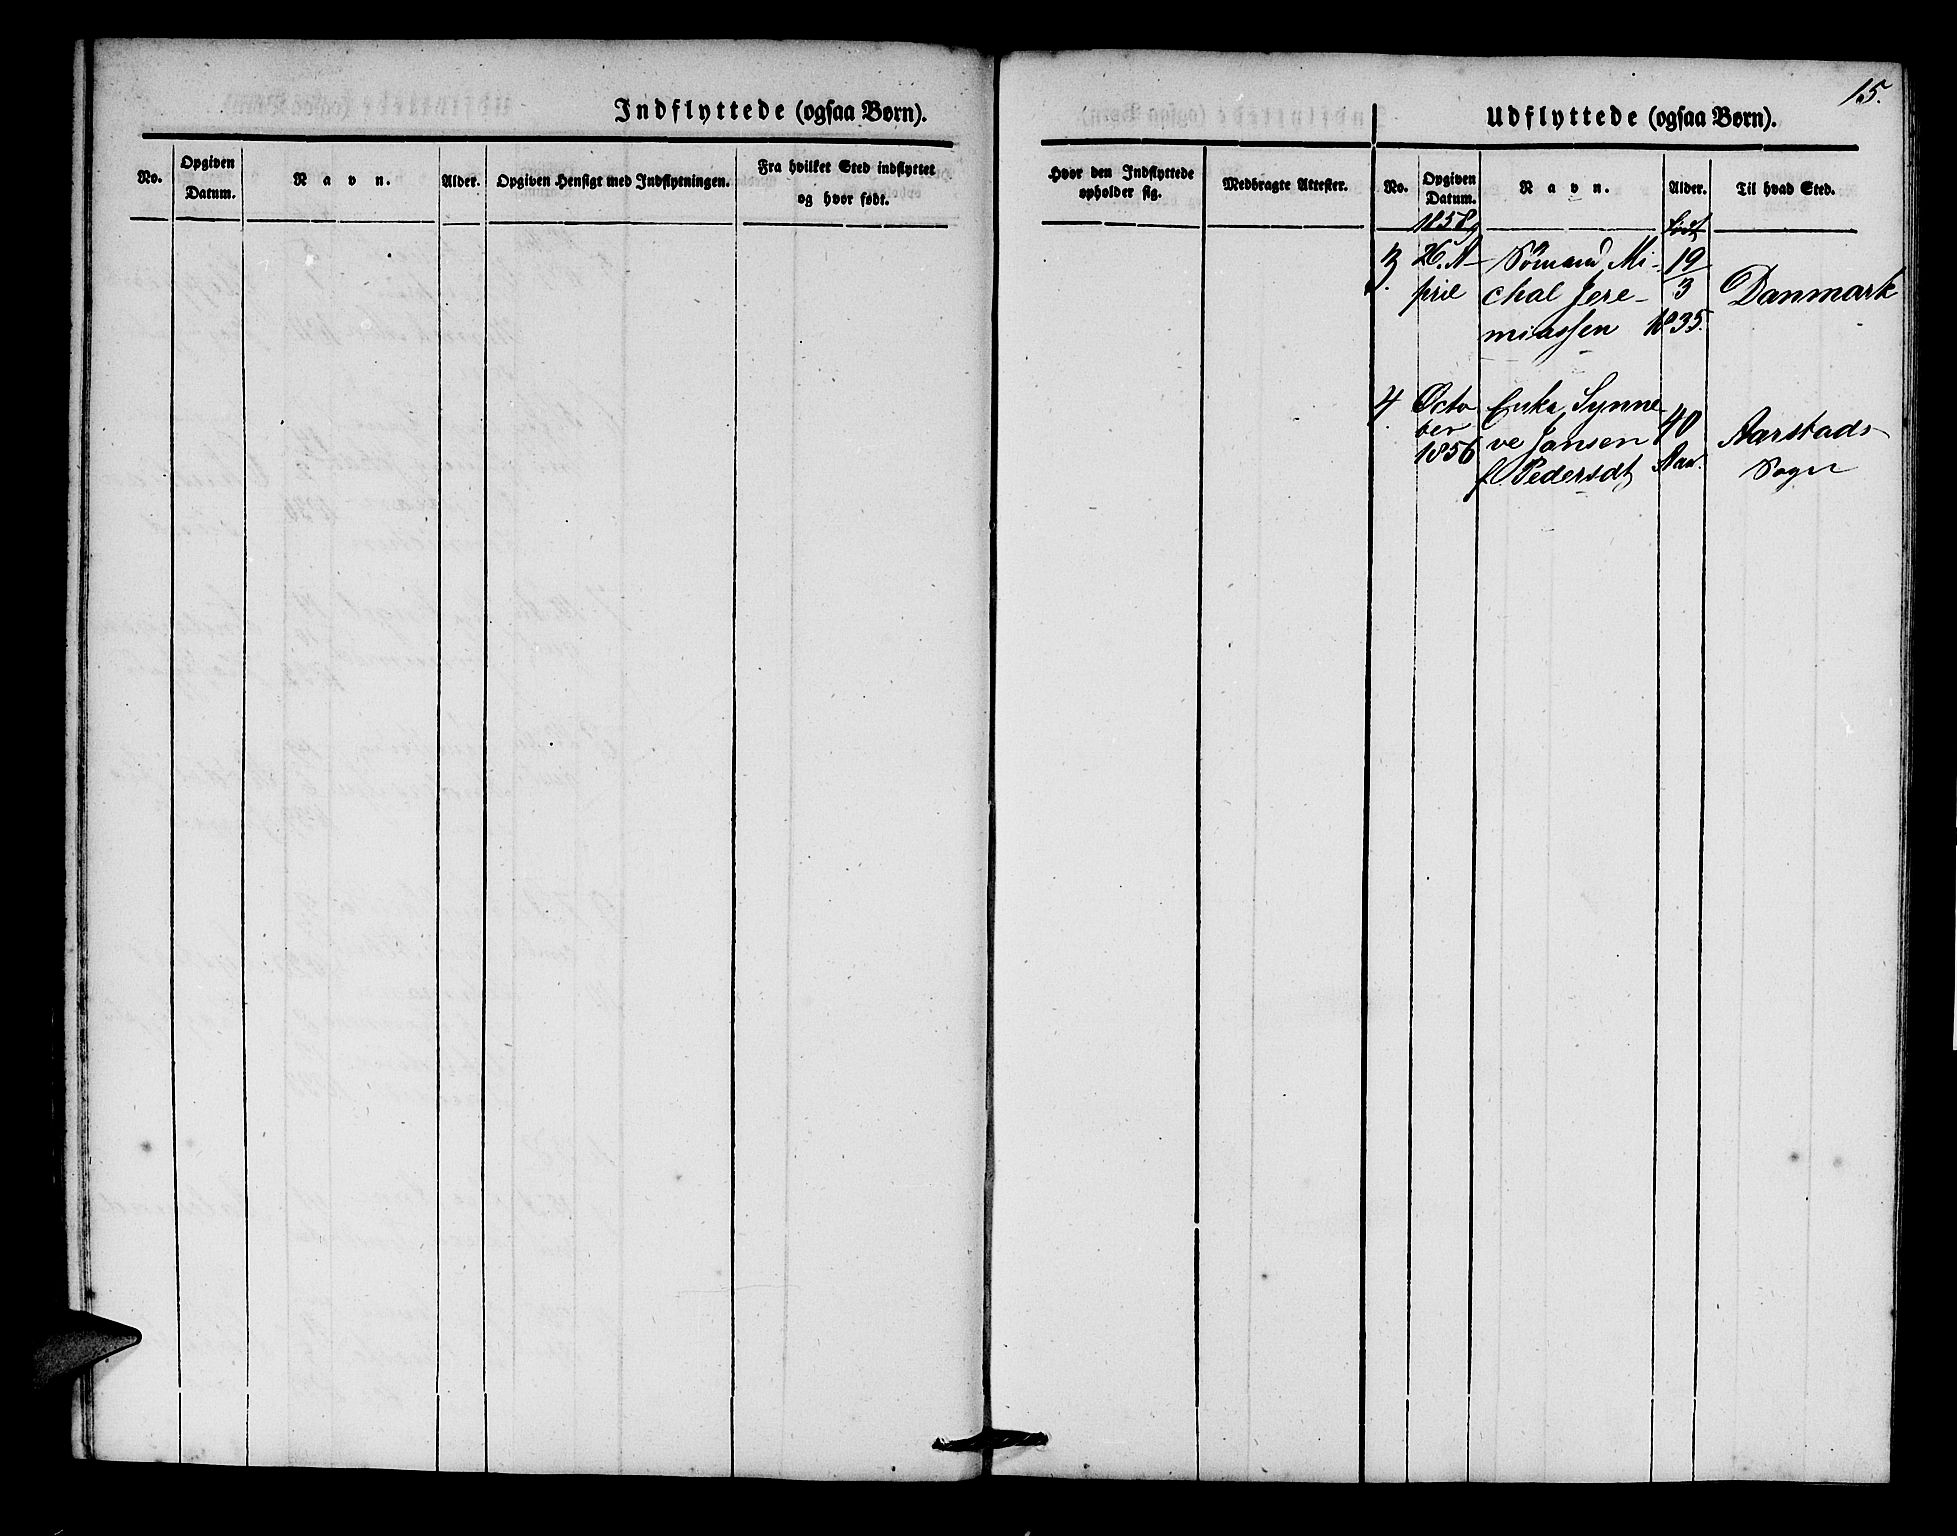 Indflyttede (ogsaa Børn).
No.
Opgiven Datum.
Navn.
Alder.
Opgiven Hensigt med Indflytningen.
Fra hvilket Sted indflyttet og hvor født.
15.
Udflyttede (ogsaa Børn).
Hvor den Indflyttede opholder sig.
Medbragte Attester.
No.
Opgiven Datum.
Navn.
Alder.
Til hvad Sted.
1858
født
3. 26. A- Sömand Mi- 19
pril chal Jere- 3 Danmark
miassen 1835.
4. Octo Synne-
ber ve Jansen 40 Aarstads
1856 f. Pedersdt Aar. Sogn